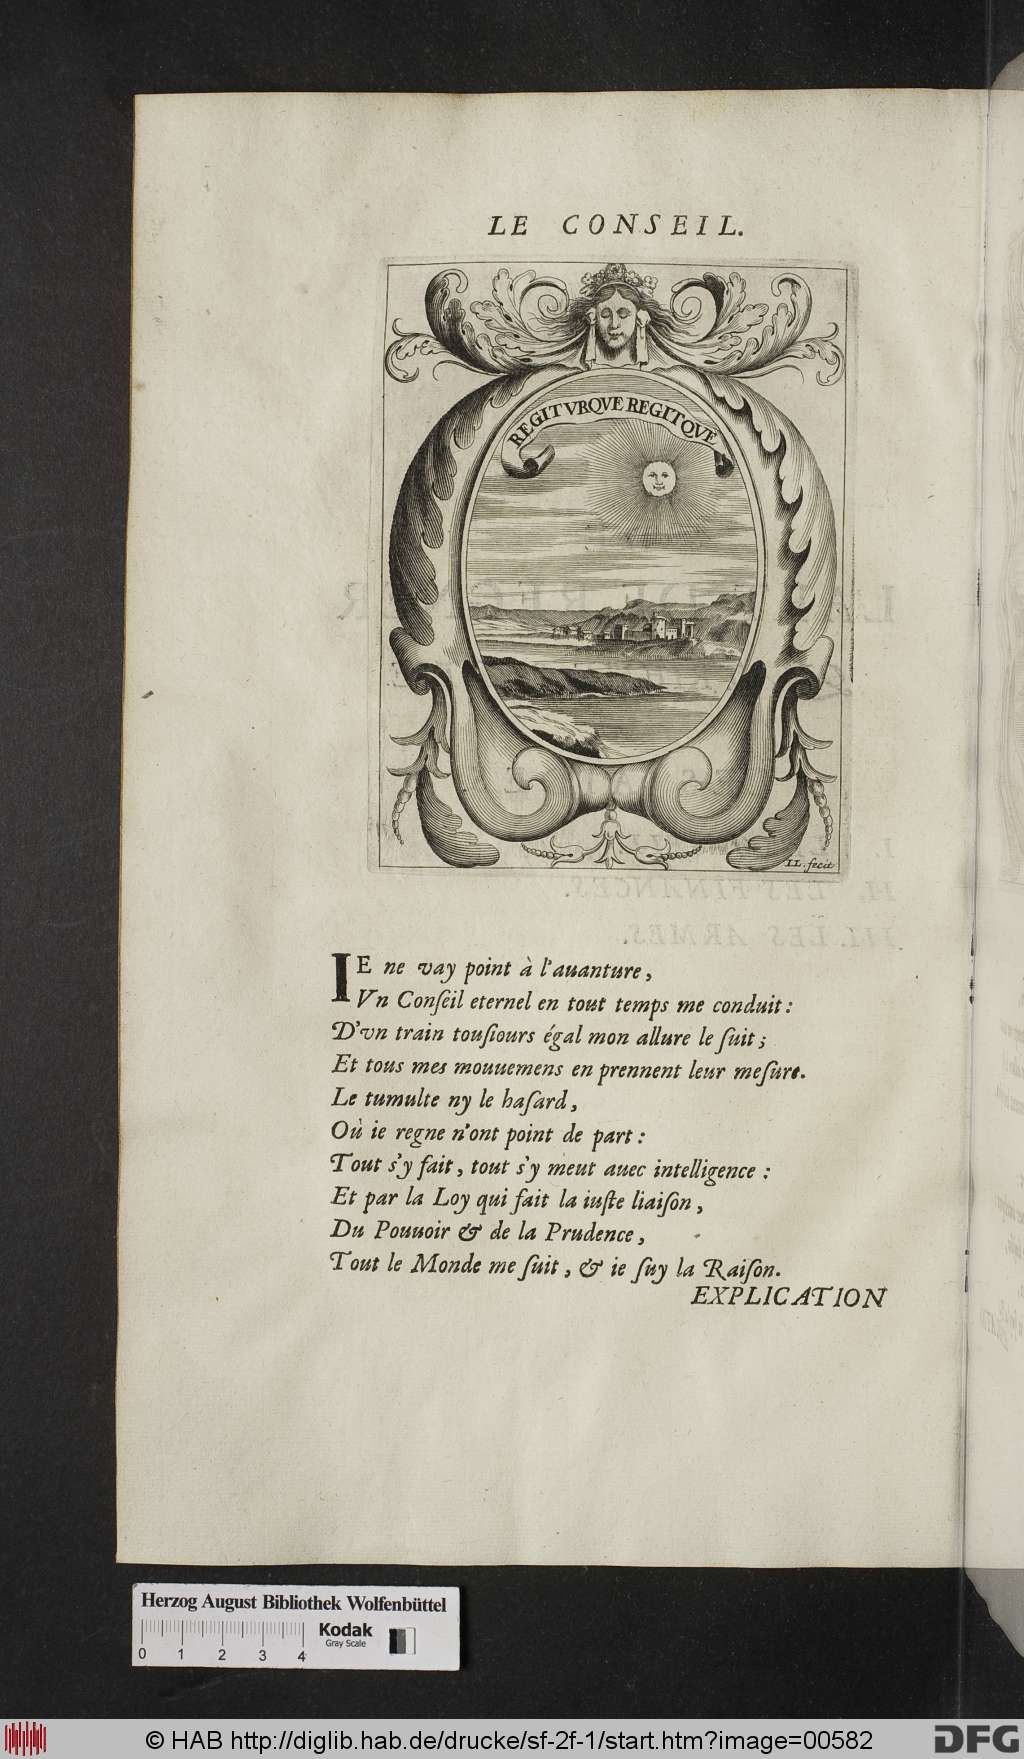 LE CONSEIL.
REGITVRQVE REGITQVE
I L. fecit
IE ne vay point à l'auanture,
Vn Conſeil eternel en tout temps me conduit :
D'vn train touſiours égal mon allure le ſuit ;
Et tous mes mouuemens en prennent leur meſure.
Le tumulte ny le haſard,
Où ie regne n'ont point de part :
Tout s'y fait, tout s'y meut auec intelligence :
Et par la Loy qui fait la iuſte liaiſon,
Du Pouuoir & de la Prudence,
Tout le Monde me ſuit, & ie ſuy la Raiſon.
EXPLICATION
Herzog August Bibliothek Wolfenbüttel
Kodak
Gray Scale
0 1 2 3 4
© HAB http://diglib.hab.de/drucke/sf-2f-1/start.htm?image=00582
DFG